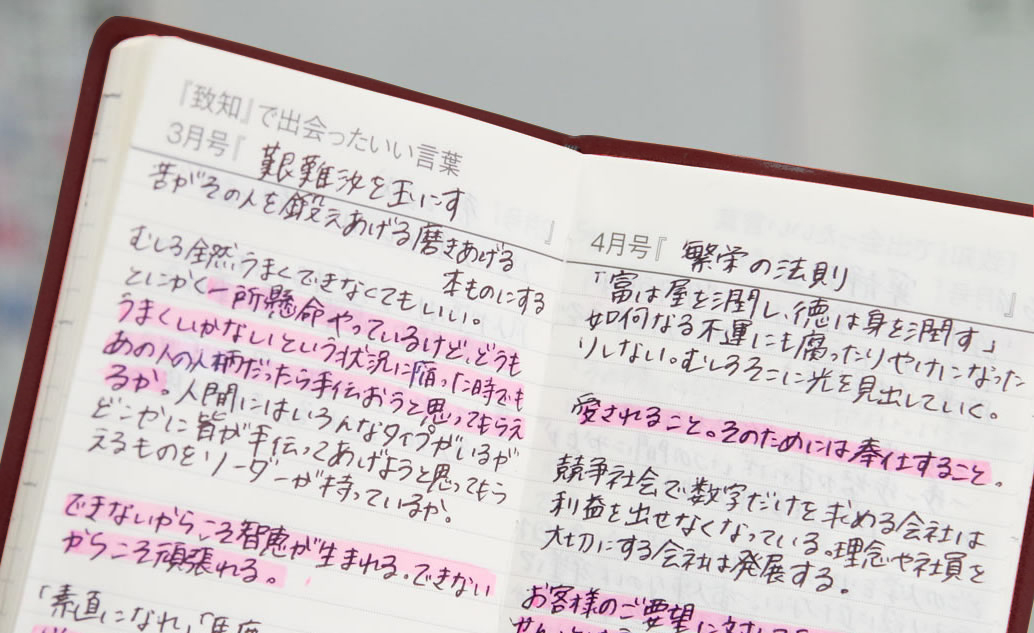 『致知』で出会ったいい言葉
3月号『艱難汝を玉にす』
苦がその人を鍛えあげる磨きあげる
本ものにする
むしろ全然、うまくできなくてもいい。
とにかく一所懸命やっているけど、どうも
うまくいかないという状況に陥った時でも
あの人の人柄だったら手伝おうと思ってもらえ
るか。人間にはいろんなタイプがいるが
どこかに皆が手伝ってあげようと思ってもら
えるものをリーダーが持っているか。
できないからこそ智恵が生まれる。できない
からこそ頑張れる。
「素直になれ」「馬鹿
4月号『繁栄の法則』
「富は屋を潤し、徳は身を潤す」
如何なる不運にも腐ったりやけになった
りしない。むしろそこに光を見出していく。
愛されること。そのためには奉仕すること。
競争社会で数字だけを求める会社は
利益を出せなくなっている。理念や社員を
大切にする会社は発展する。
お客様のご要望に対して